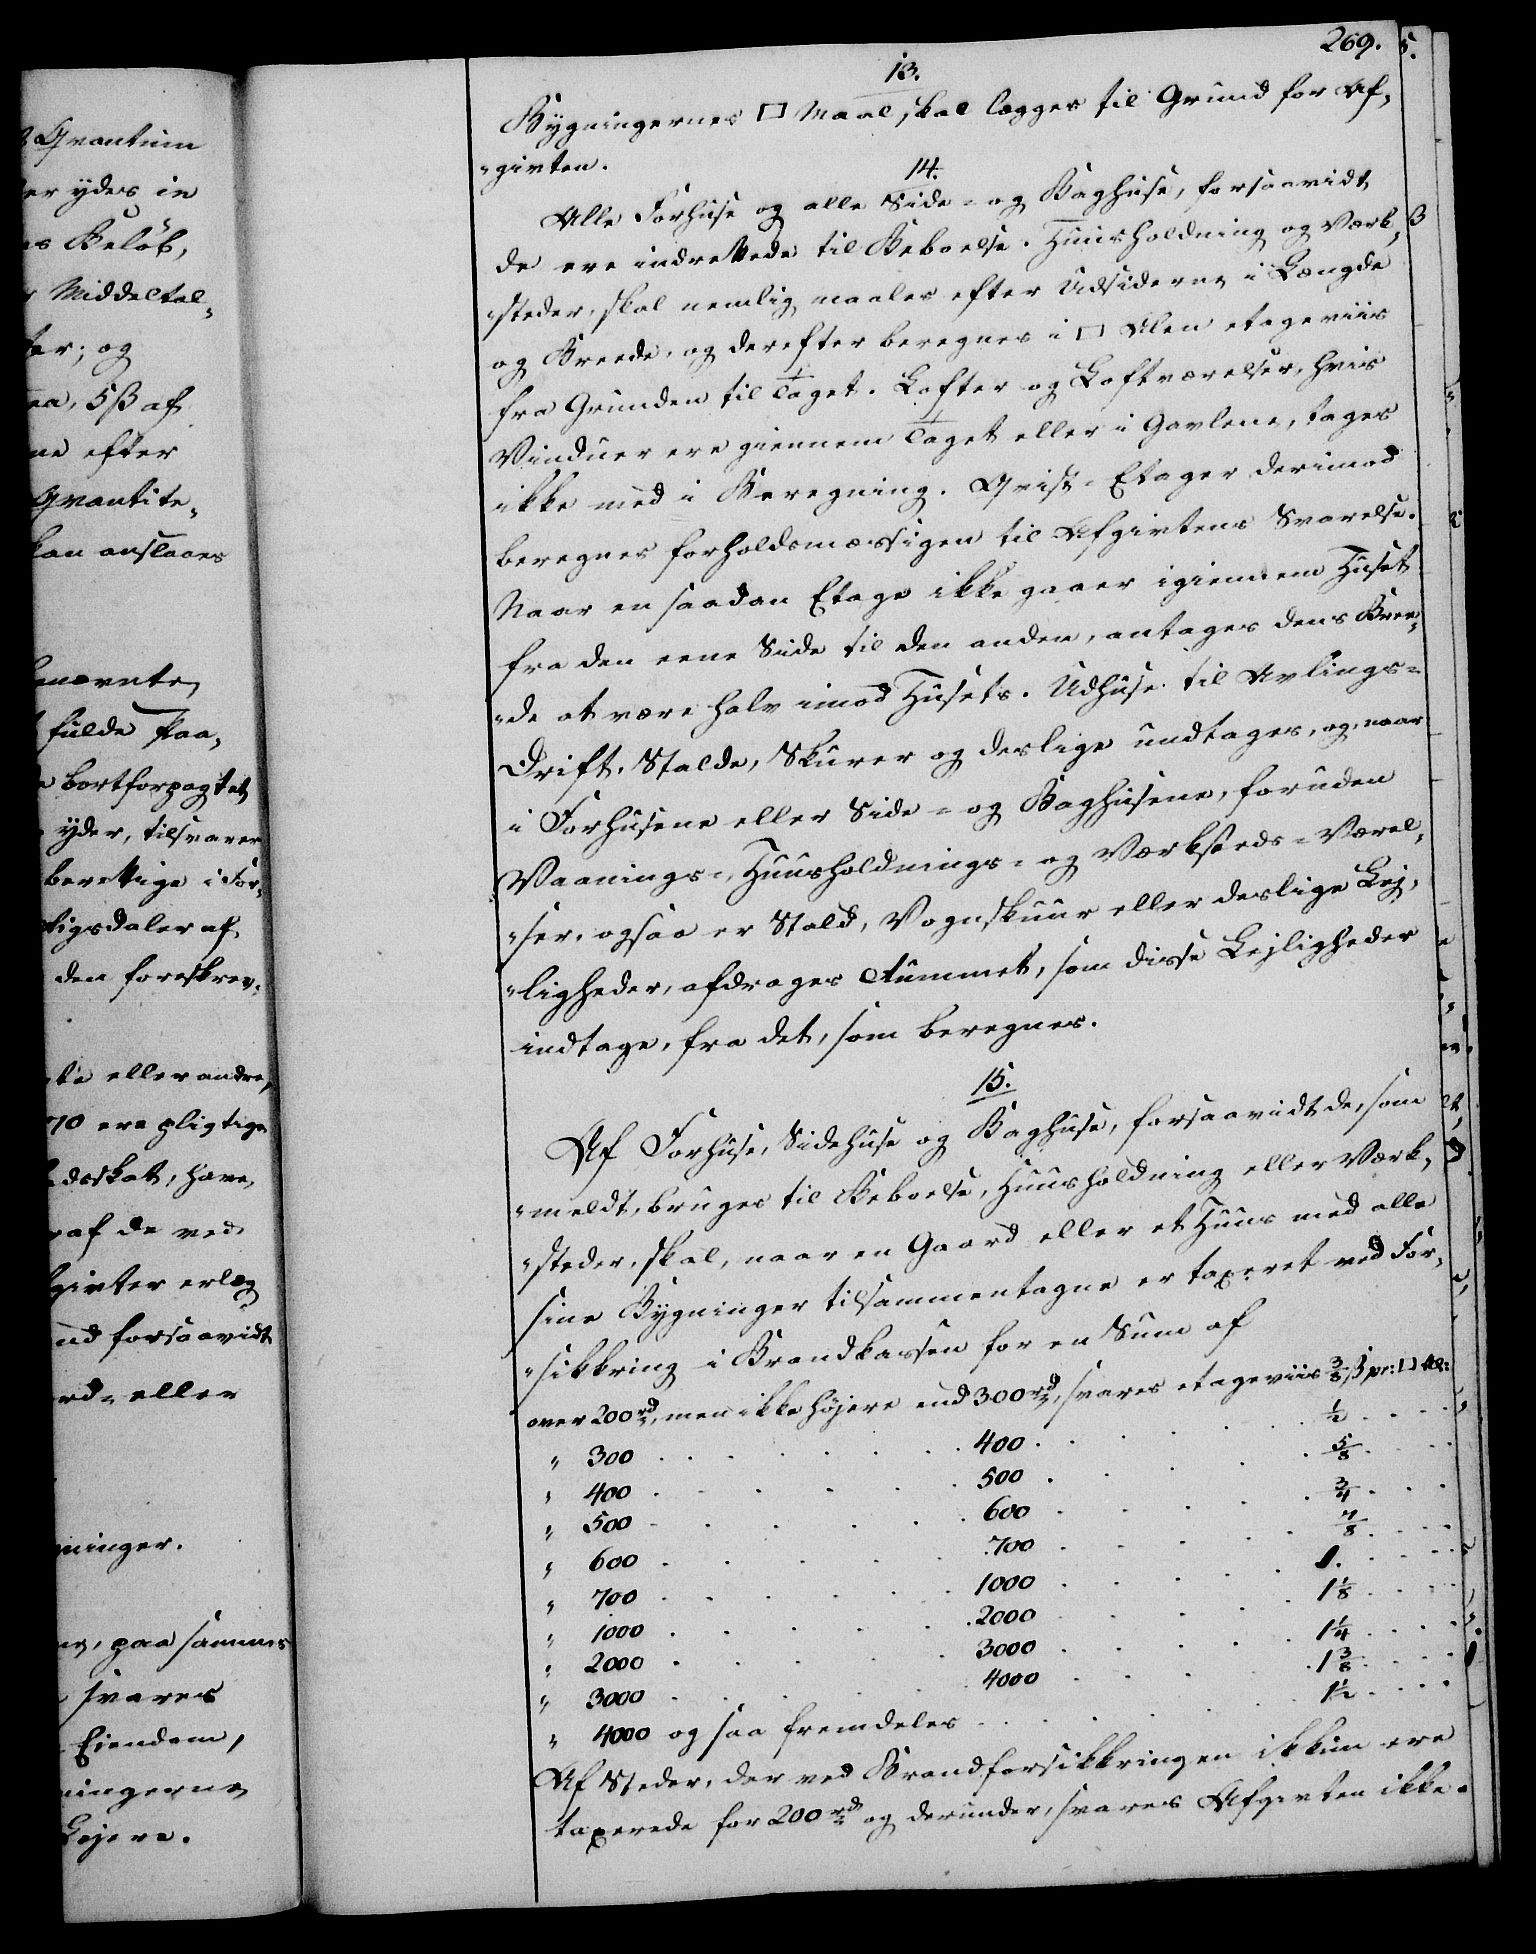 269.
13.
Bygningernes □ Maal skal lægges til Grund for Af„
„givten.
14.
Alle Forhuse og alle Side- og Baghuse, forsaavidt
de ere indrettede til Beboelse. Huusholdning og Værk„
„steder, skal nemlig maales efter Udsiderne i Længde
og Breede, og derefter beregnes i □ Alen etageviis
fra Grunden til Taget. Lofter og Loftværelser, hvis
Vinduer ere giennem Taget eller i Gavlene, tages
ikke med i Beregning. Qvist-Etager derimod
beregnes forholdsmæssigen til Afgivtens Svarelse.
Naar en saadan Etage ikke gaaer igiennem Huset
fra den eene Side til den anden, antages dens Bree„
„de at være halv imod Husets. Udhuse til Avlings-
Drift, Stalde, Skurer og deslige undtages, og, naar
i Forhusene eller Side- og Baghusene, foruden
Vaanings-, Huusholdnings- og Værksteds-Værel„
„ser, ogsaa er Stald, Vognskuur eller deslige Lej„
„ligheder, afdrages Rummet, som disse Lejligheder
indtage, fra det, som beregnes.
15.
Af Forhuse, Sidehuse og Baghuse, forsaavidt de, som
„meldt, bruges til Beboelse, Huusholdning eller Værk„
„steder, skal, naar en Gaard eller et Huus med alle
sine Bygninger tilsammentagne er taxeret ved For„
„sikkring i Brandkassen for en Sum af
over 200 rd, men ikke højere end 300 rd, svares etageviis 3/8 ß pr: □ Al:
„ 300 . . . . . . 400 . . . . . 1/2 . . . .
„ 400 . . . . . . 500 . . . . . 5/8 . . . .
„ 500 . . . . . . 600 . . . . . 3/4 . . . .
„ 600 . . . . . . 700 . . . . . 7/8 . . . .
„ 700 . . . . . . 1000 . . . . . 1. . . . .
„ 1000 . . . . . . 2000 . . . . . 1 1/8 . . . .
„ 2000 . . . . . . 3000 . . . . . 1 1/4 . . . .
„ 3000 . . . . . . 4000 . . . . . 1 3/8 . . . .
„ 4000 og saa fremdeles . . . . . 1 1/2 . . . .
Af Steder, der ved Brandforsikkringen ikkun ere
taxerede for 200 rd og derunder, svares Afgivten ikke.
Qvantum
er ydes in
Beløb,
Middeltal„
og
5 ß af
efter
Qvantite„
kan anslaaes
fulde Paa„
bortforpagtet
yder, tilsvarer
berettige i For„
rigsdaler af
den foreskrev„
eller andre,
ere pligtige
have,
af de ved
erlæg
forsaavidt
eller
paa sammes
svares
Eiendom,
Ejere.